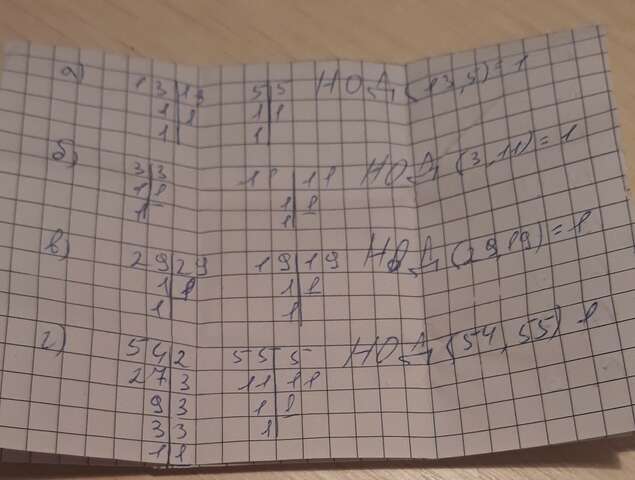 а) 13|13 5|5 НОД (13,5)=1
1|1 1|1
1| 1|
б) 3|3 11|11 НОД (3,11)=1
1|1 1|1
1| 1|
в) 29|29 19|19 НОД (29,19)=1
1|1 1|1
1| 1|
г) 54|2 55|5 НОД (54,55) 1
27|3 11|11
9|3 1|1
3|3 1|
1|1